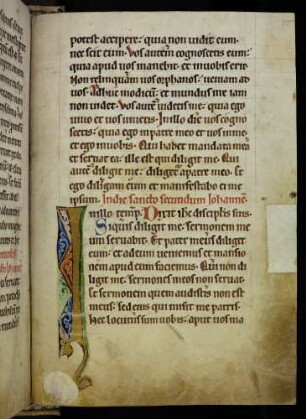 potest accipere. quia non uidit eum.
nec scit eum. Vos autem cognoscetis eum.
quia apud uos manebit. et in uobis erit.
Non relinquam uos orphanos. ueniam ad
uos. Adhuc modicum. et mundus me iam
non uidet. Vos aute uidetis me. quia ego
uiuo et uos uiuetis. In illo die uos cogno
scetis. quia ego in patre meo et uos in me.
et ego in uobis. Qui habet mandata mea
et seruat ea. ille est qui diligit me. Qui
aute diligit me. diliget a patre meo. Et
ego diligam eum et manifestabo ei me
ipsum. In die sancto secundum Johanne
In illo temp. Dixit ihc discipulis suis.
Siquis diligit me. sermonem me
um seruabit. Et pater meus diliget
eum. et ad eum ueniemus et mansio
nem apud eum faciemus. Qui non di
ligit me. sermones meos non seruat.
Et sermonem quem audistis non est
meus. sed eius qui misit me patris.
Hec locutus sum uobis. aput uos ma